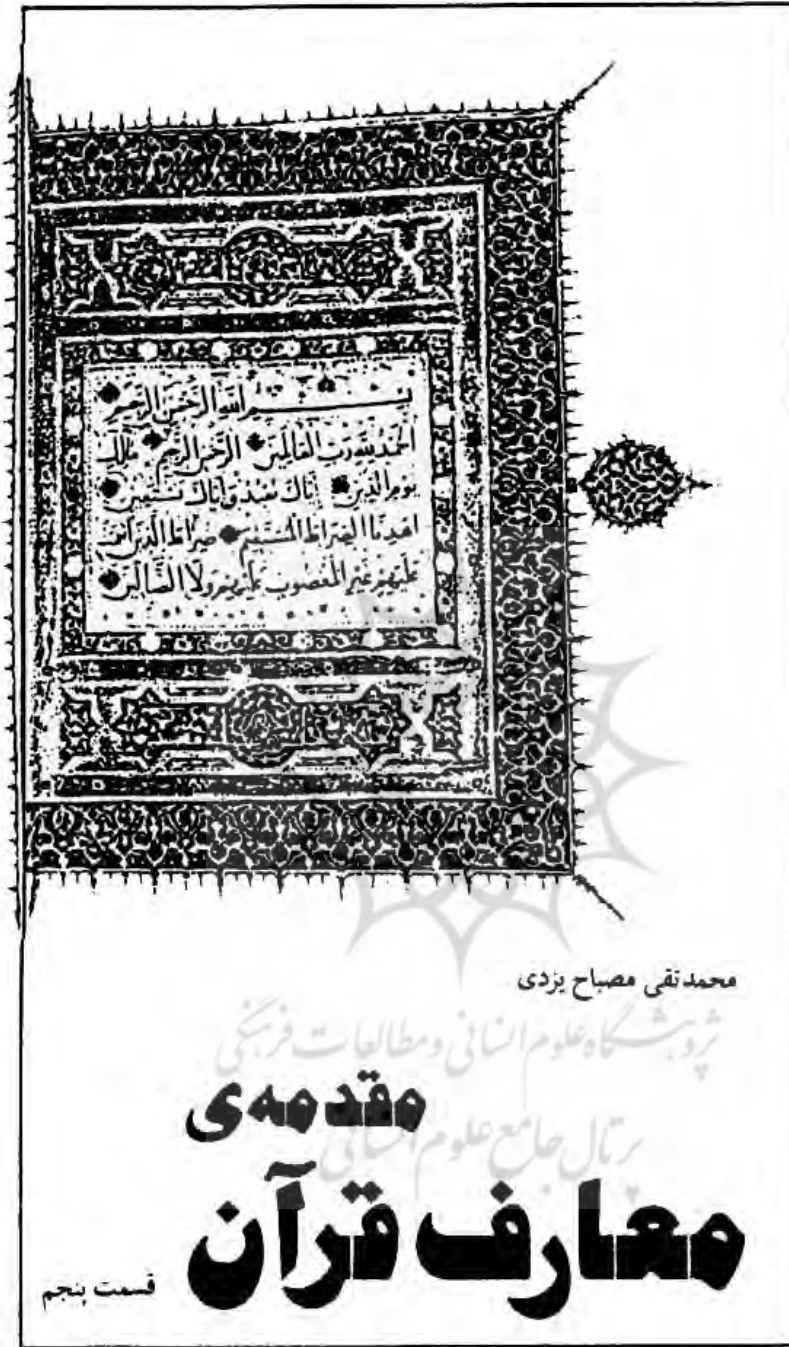 بسم الله الرحمن الرحيم
الحمد لله رب العالمين الرحمن الرحيم مالك
يوم الدين إياك نعبد وإياك نستعين
اهدنا الصراط المستقيم صراط الذين أنعمت
عليهم غير المغضوب عليهم ولا الضالين
محمدتقی مصباح یزدی
پژوهشگاه علوم انسانی و مطالعات فرهنگی
مقدمه‌ی
پرتال جامع علوم انسانی
معارف قرآن
قسمت پنجم